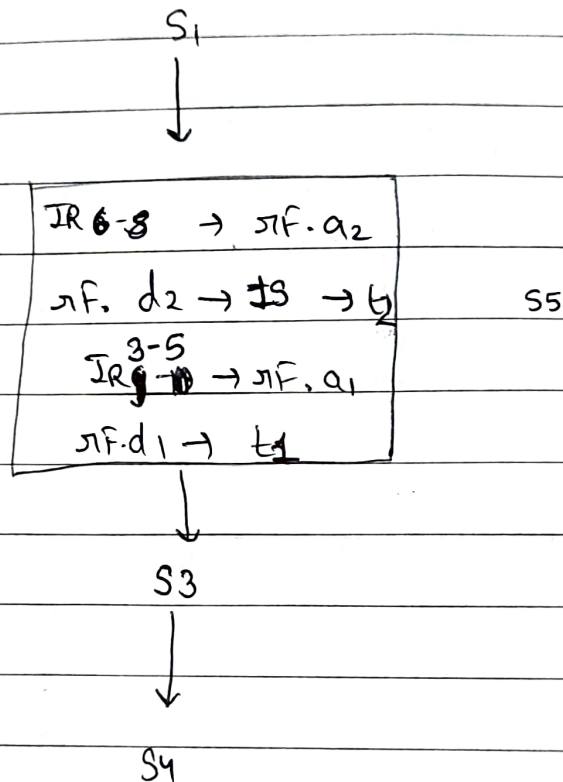 S1
IR 6-8 → rF. a2
rF. d2 → IS → t2
S5
3-5
IR → rF. a1
rF. d1 → t1
S3
S4